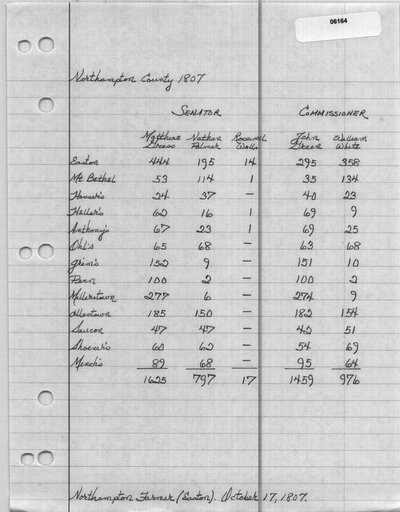 06164
Northampton County 1807
SENATOR COMMISSIONER
Matthias Nathan Rosewell John William
Gress Palmer Wells Green White
Easton 444 195 14 295 358
Mt Bethel 53 114 1 35 134
Hauser's 24 37 — 40 23
Heller's 62 16 1 69 9
Anthony's 67 23 1 69 25
Ohl's 65 68 — 63 68
Grim's 152 9 — 151 10
Penn 100 2 — 100 2
Millerstown 277 6 — 274 9
Allentown 185 150 — 182 154
Saucon 47 47 — 42 51
Shoener's 60 62 — 54 69
Mench's 89 68 — 95 64
1625 797 17 1459 976
Northampton Farmer (Easton). October 17, 1807.